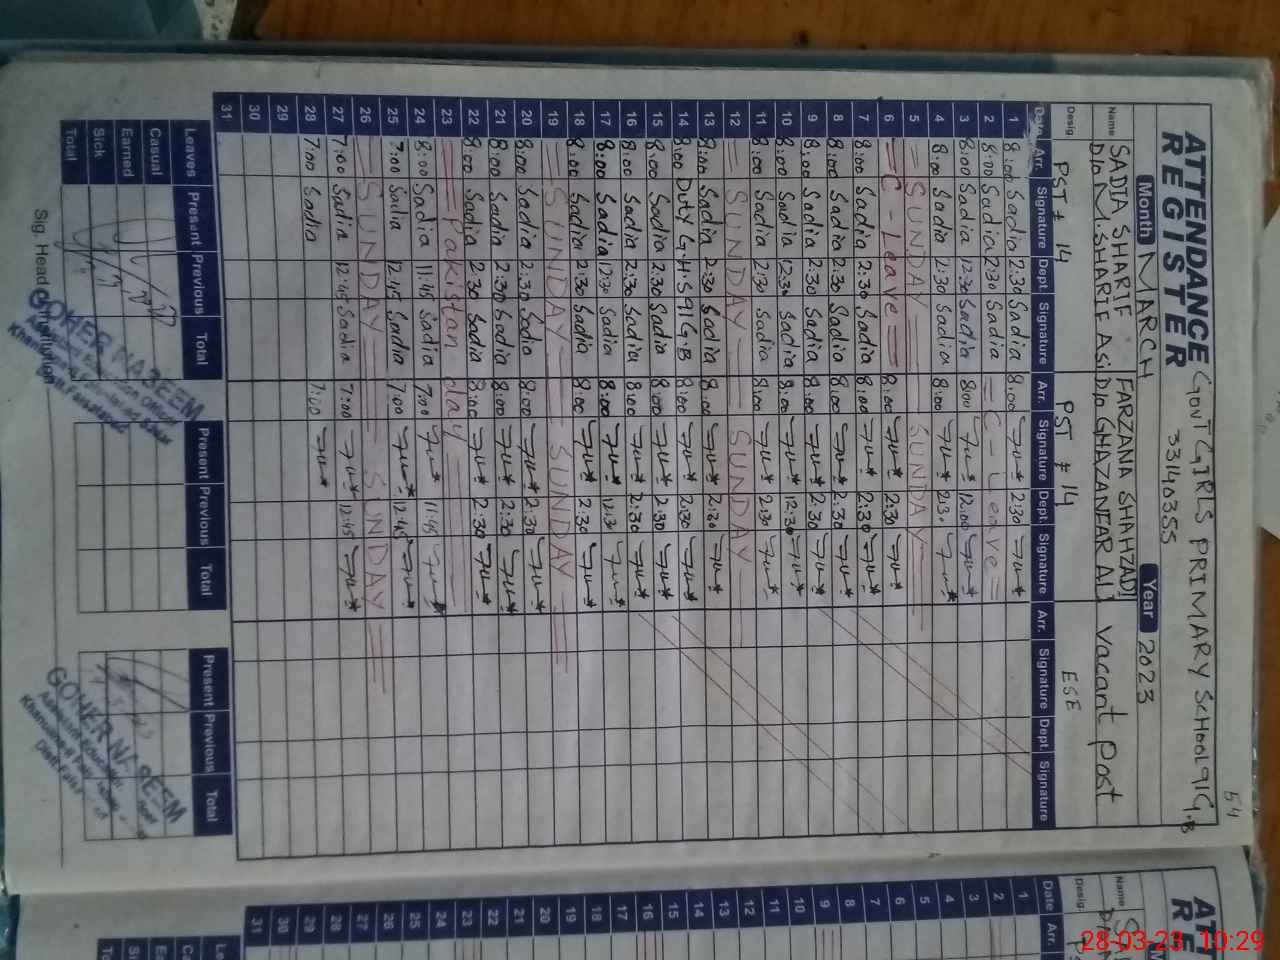 54
ATTENDANCE REGISTER
GOVT GIRLS PRIMARY SCHOOL 91 G.B
33140355
Month MARCH Year 2023
Name SADIA SHARIF FARZANA SHAHZADI Vacant Post
D/o M.SHARIF D/o GHAZANFAR ALI
Desig. PST # 14 PST # 14 ESE
Date Arr. Signature Dept. Signature Arr. Signature Dept. Signature Arr. Signature Dept. Signature
1 8:00 Sadia 2:30 Sadia 8:00 2:30
2 8:00 Sadia 2:30 Sadia = C - Leave =
3 8:00 Sadia 12:30 Sadia 8:00 12:00
4 8:00 Sadia 2:30 Sadia 8:00 2:30
5 = SUNDAY = SUNDAY
6 = C - Leave = 8:00 2:30
7 8:00 Sadia 2:30 Sadia 8:00 2:30
8 8:00 Sadia 2:30 Sadia 8:00 2:30
9 8:00 Sadia 2:30 Sadia 8:00 2:30
10 8:00 Sadia 12:30 Sadia 8:00 12:30
11 8:00 Sadia 2:30 Sadia 8:00 2:30
12 = SUNDAY = SUNDAY =
13 8:00 Sadia 2:30 Sadia 8:00 2:30
14 8:00 Duty G.H.S 91 G.B 8:00 2:30
15 8:00 Sadia 2:30 Sadia 8:00 2:30
16 8:00 Sadia 2:30 Sadia 8:00 2:30
17 8:00 Sadia 12:30 Sadia 8:00 12:30
18 8:00 Sadia 2:30 Sadia 8:00 2:30
19 = SUNDAY = SUNDAY =
20 8:00 Sadia 2:30 Sadia 8:00 2:30
21 8:00 Sadia 2:30 Sadia 8:00 2:30
22 8:00 Sadia 2:30 Sadia 8:00 2:30
23 = Pakistan day =
24 8:00 Sadia 11:45 Sadia 7:00 11:45
25 7:00 Sadia 12:45 Sadia 7:00 12:45
26 = SUNDAY = SUNDAY =
27 7:00 Sadia 12:45 Sadia 7:00 12:45
28 7:00 Sadia 7:00
29
30
31
Leaves Present Previous Total Present Previous Total Present Previous Total
Casual
Earned
Sick
Total
Sig. Head of Institution
GOHER NABEEM
GOHER NABEEM
ATT
RE
Name
Desig.
Date Arr.
1
2
3
4
5
6
7
8
9
10
11
12
13
14
15
16
17
18
19
20
21
22
23
24
25
26
27
28
29
30
31
28-03-23 10:29